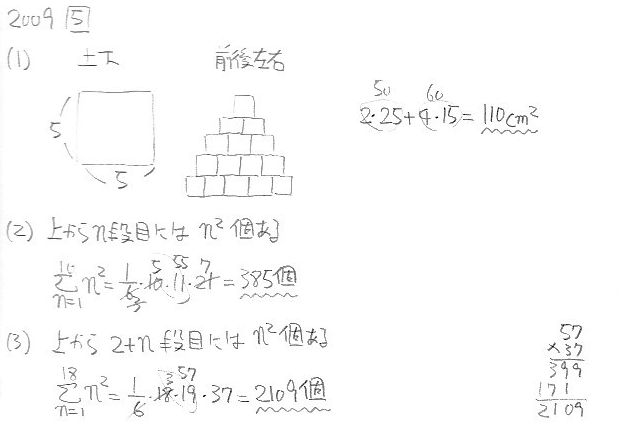 2009 5
(1) 上下 前後左右
5
5
50 60
2・25+4・15=110cm²
(2) 上からn段目にはn²個ある
10 5 55 7
Σ n²=1/6・10・11・21=385個
n=1 3
(3) 上から2+n段目にはn²個ある
18 3 57
Σ n²=1/6・18・19・37=2109個
n=1
57
×37
399
171
2109